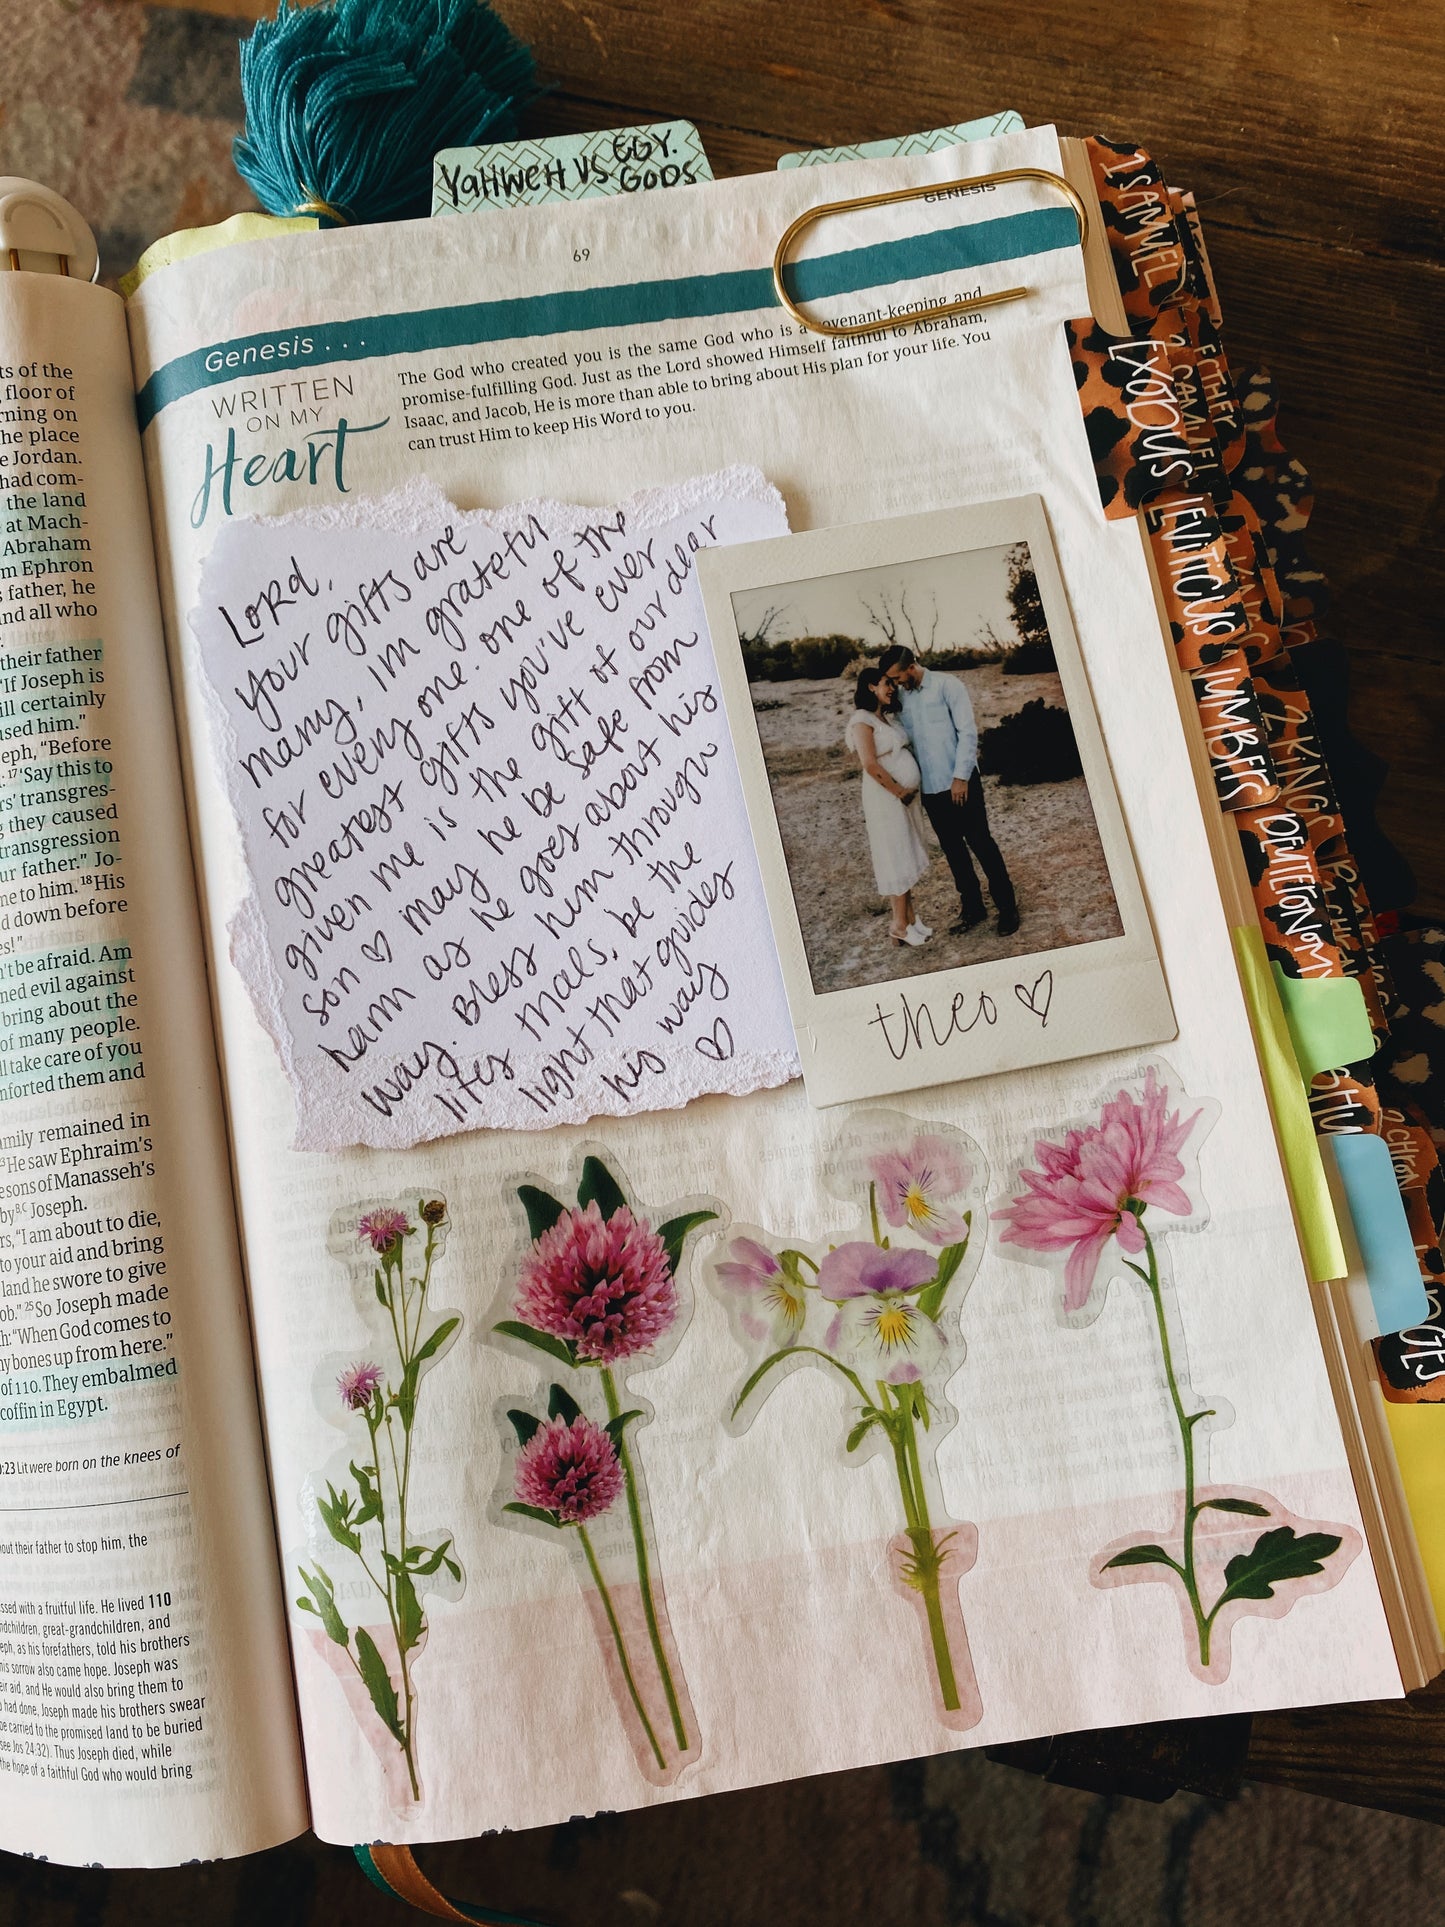 YAHWEH VS. EGY. GODS
GENESIS
69
Genesis . . .
WRITTEN
ON MY
Heart
The God who created you is the same God who is a covenant-keeping and
promise-fulfilling God. Just as the Lord showed Himself faithful to Abraham,
Isaac, and Jacob, He is more than able to bring about His plan for your life. You
can trust Him to keep His Word to you.
Lord,
your gifts are
many, I'm grateful
for every one. one of the
greatest gifts you've ever
given me is the gift of our dear
son ♡ may he be safe from
harm as he goes about his
way. Bless him through
lifes trials. be the
light that guides
his way ♡
theo ♡
1 SAMUEL
EXODUS
2 SAMUEL
ESTHER
LEVITICUS
NUMBERS
2 KINGS
DEUTERONOMY
2 CHRON
JUDGES
ts of the
floor of
rning on
he place
e Jordan.
had com-
the land
at Mach-
Abraham
m Ephron
s father, he
nd all who
their father
"If Joseph is
ill certainly
used him."
eph, "Before
17 'Say this to
rs' transgres-
g they caused
transgression
ur father." Jo-
me to him. 18 His
d down before
es!"
n't be afraid. Am
ned evil against
bring about the
of many people.
ll take care of you
mforted them and
amily remained in
He saw Ephraim's
e sons of Manasseh's
by Joseph.
rs, "I am about to die,
to your aid and bring
land he swore to give
ob." 25 So Joseph made
h: "When God comes to
my bones up from here."
of 110. They embalmed
coffin in Egypt.
0:23 Lit were born on the knees of
out their father to stop him, the
ssed with a fruitful life. He lived 110
ndchildren, great-grandchildren, and
eph, as his forefathers, told his brothers
his sorrow also came hope. Joseph was
eir aid, and He would also bring them to
had done, Joseph made his brothers swear
be carried to the promised land to be buried
see Jos 24:32). Thus Joseph died, while
the hope of a faithful God who would bring